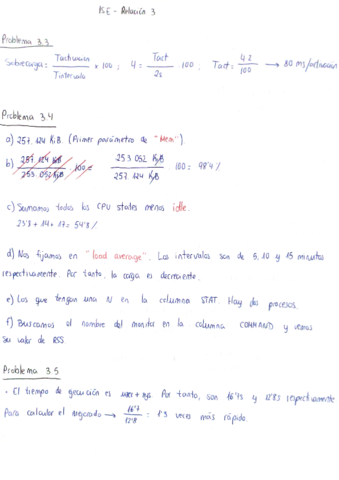 ISE - Relación 3
Problema 3.3
Sobrecarga = Tactivación / Tintervalo × 100 ; 4 = Tact / 2s · 100 ; Tact = 4·2 / 100 → 80 ms/activación
Problema 3.4
a) 257.124 KiB. (Primer parámetro de "Mem").
b) 257.124 KiB / 253.052 KiB · 100 = 253.052 KiB / 257.124 KiB · 100 = 98'4 %
c) Sumamos todos los CPU states menos idle.
23'8 + 14 + 17 = 54'8 %
d) Nos fijamos en "load average". Los intervalos son de 5, 10 y 15 minutos
respectivamente. Por tanto, la carga es decreciente.
e) Los que tengan una N en la columna STAT. Hay dos procesos.
f) Buscamos el nombre del monitor en la columna COMMAND y vemos
su valor de RSS.
Problema 3.5
· El tiempo de ejecución es user + sys. Por tanto, son 16'7s y 12'8s respectivamente
Para calcular el mejorado → 16'7 / 12'8 = 1'3 veces más rápido.